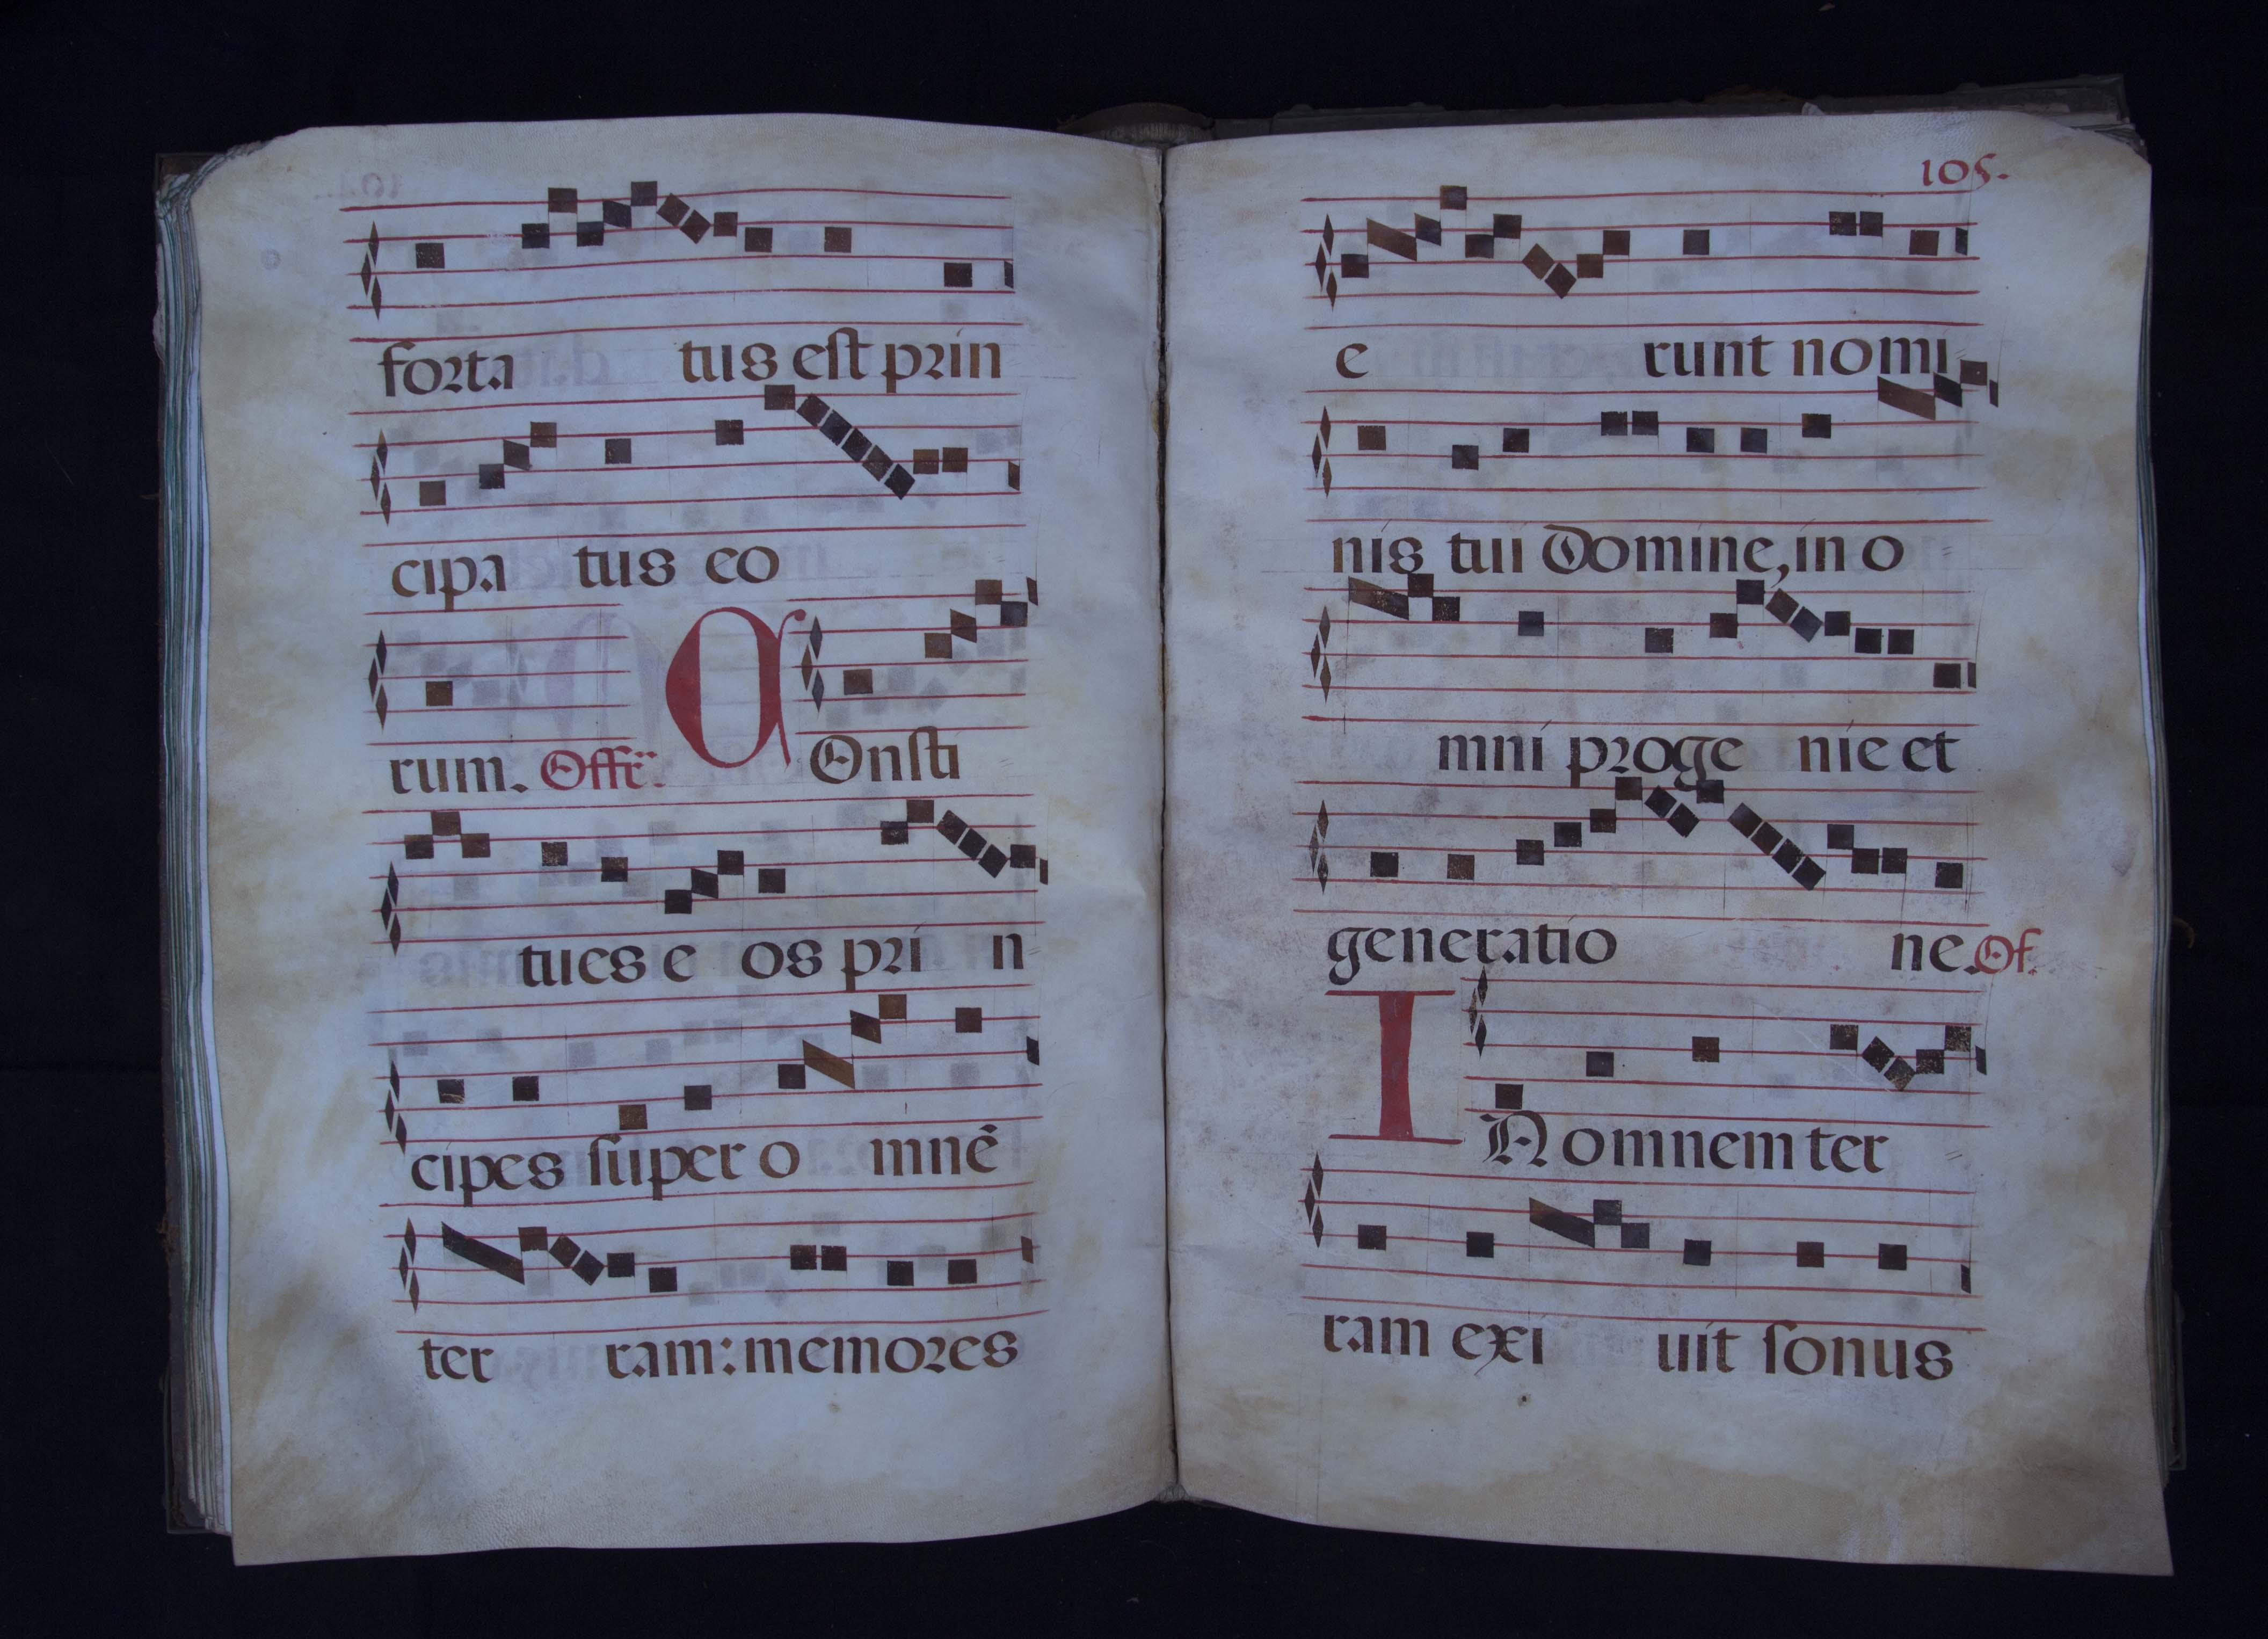 forta tus est prin
cipa tus eo
rum. Offr̃.
C Onsti
tues e os pri n
cipes super o mnẽ
ter ram: memores
105.
e runt nomi
nis tui Domine, in o
mni proge nie et
generatio ne. Of.
I N omnem ter
ram exi uit sonus